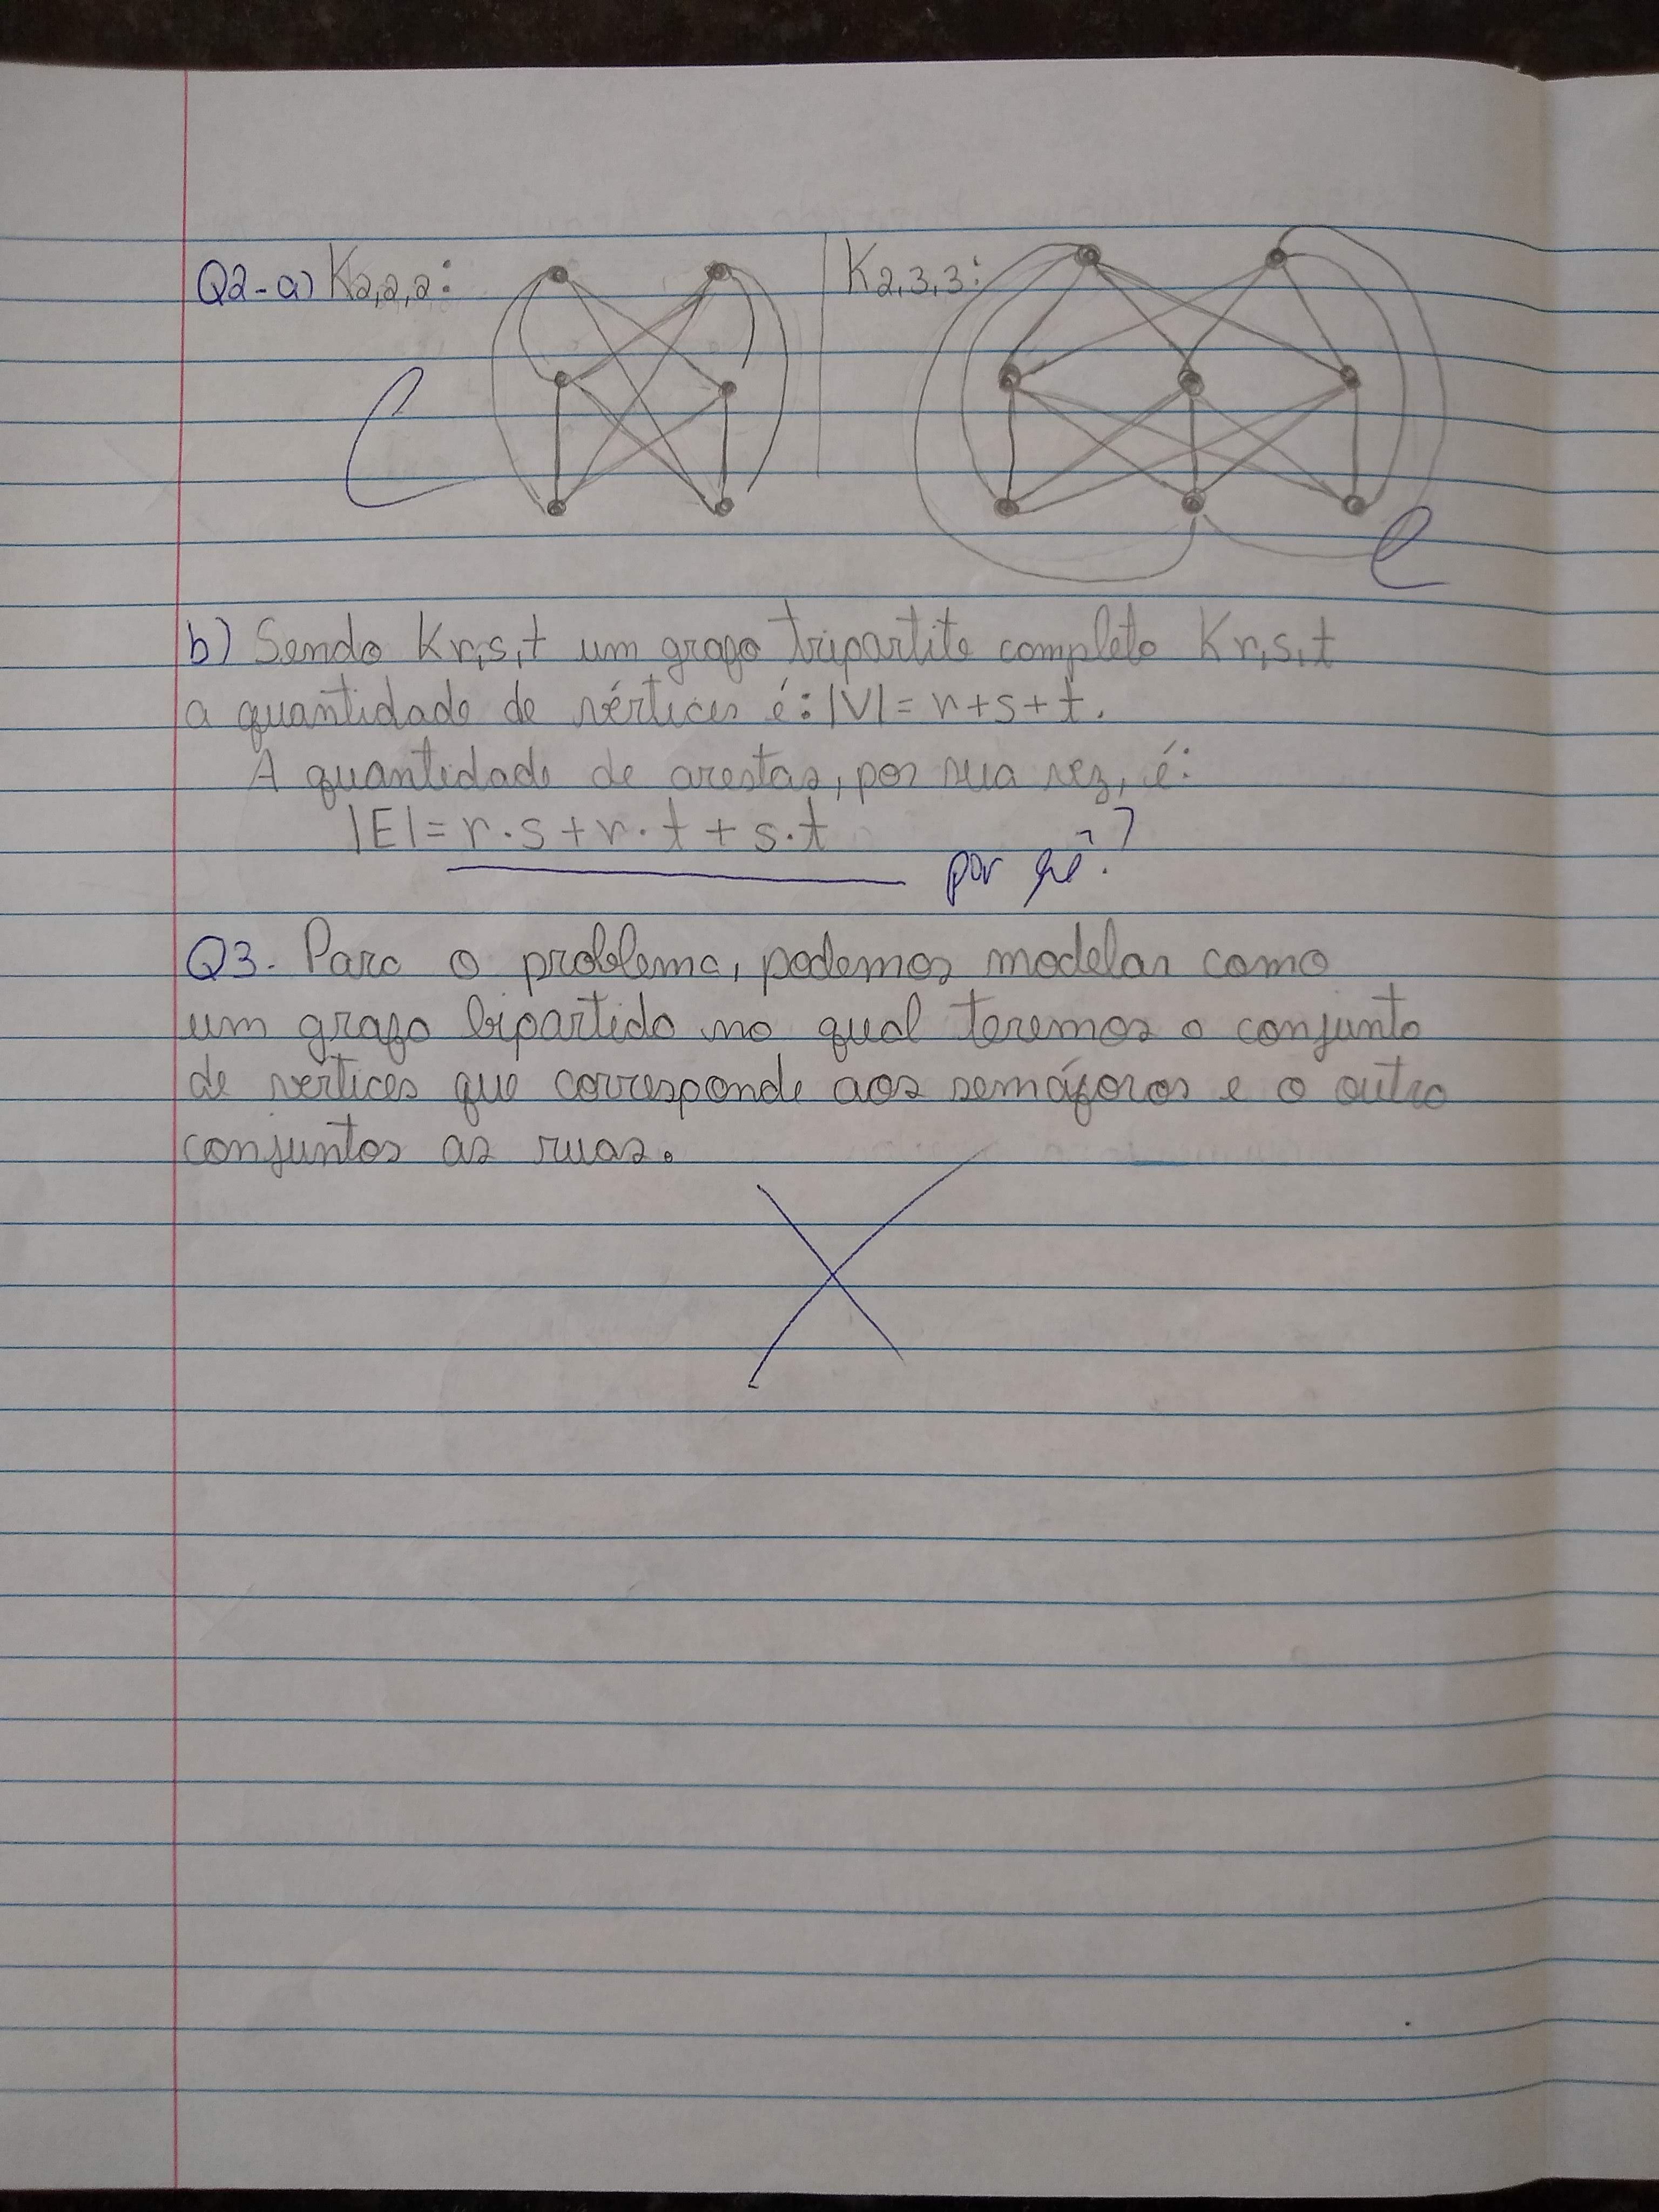 Q2-a) K2,2,2:
K2,3,3:
b) Sendo Kr,s,t um grafo tripartite completo Kr,s,t
a quantidade de vértices é: |V| = r+s+t.
A quantidade de arestas, por sua vez, é:
|E| = r·s + r·t + s·t
por quê?
Q3. Para o problema, podemos modelar como
um grafo bipartido no qual teremos o conjunto
de vértices que corresponde aos semáforos e o outro
conjuntos as ruas.